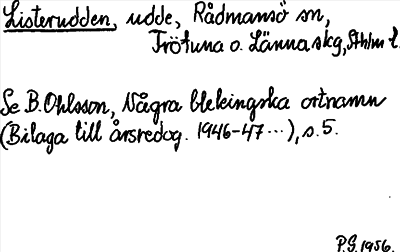 Listerudden, udde, Rådmansö sn,
Frötuna o. Länna skg, Sthlm l.
Se B. Ohlsson, Några blekingska ortnamn
(Bilaga till årsredog. 1946-47...), s. 5.
P.G. 1956.